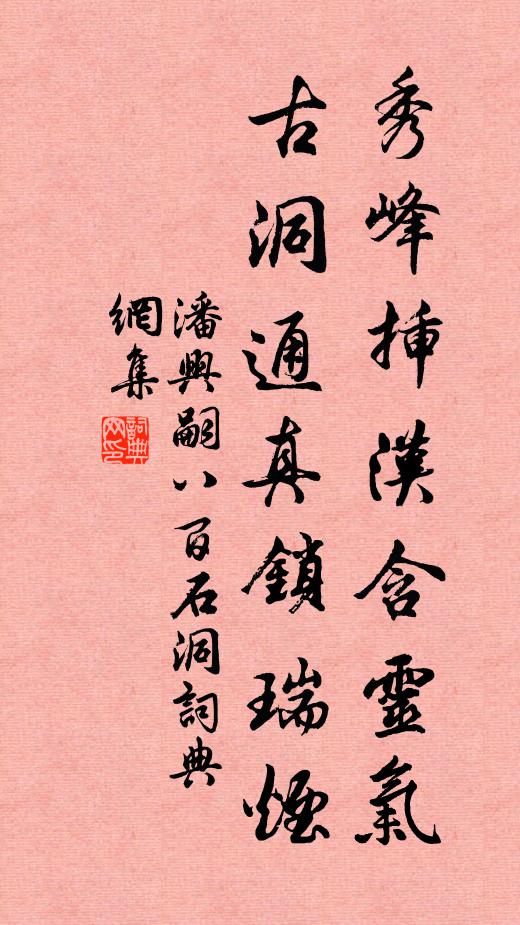 秀峰挿漢含靈氣
古洞通真鎖瑞煙
潘興嗣八百石洞詞典
網集
詞典網印